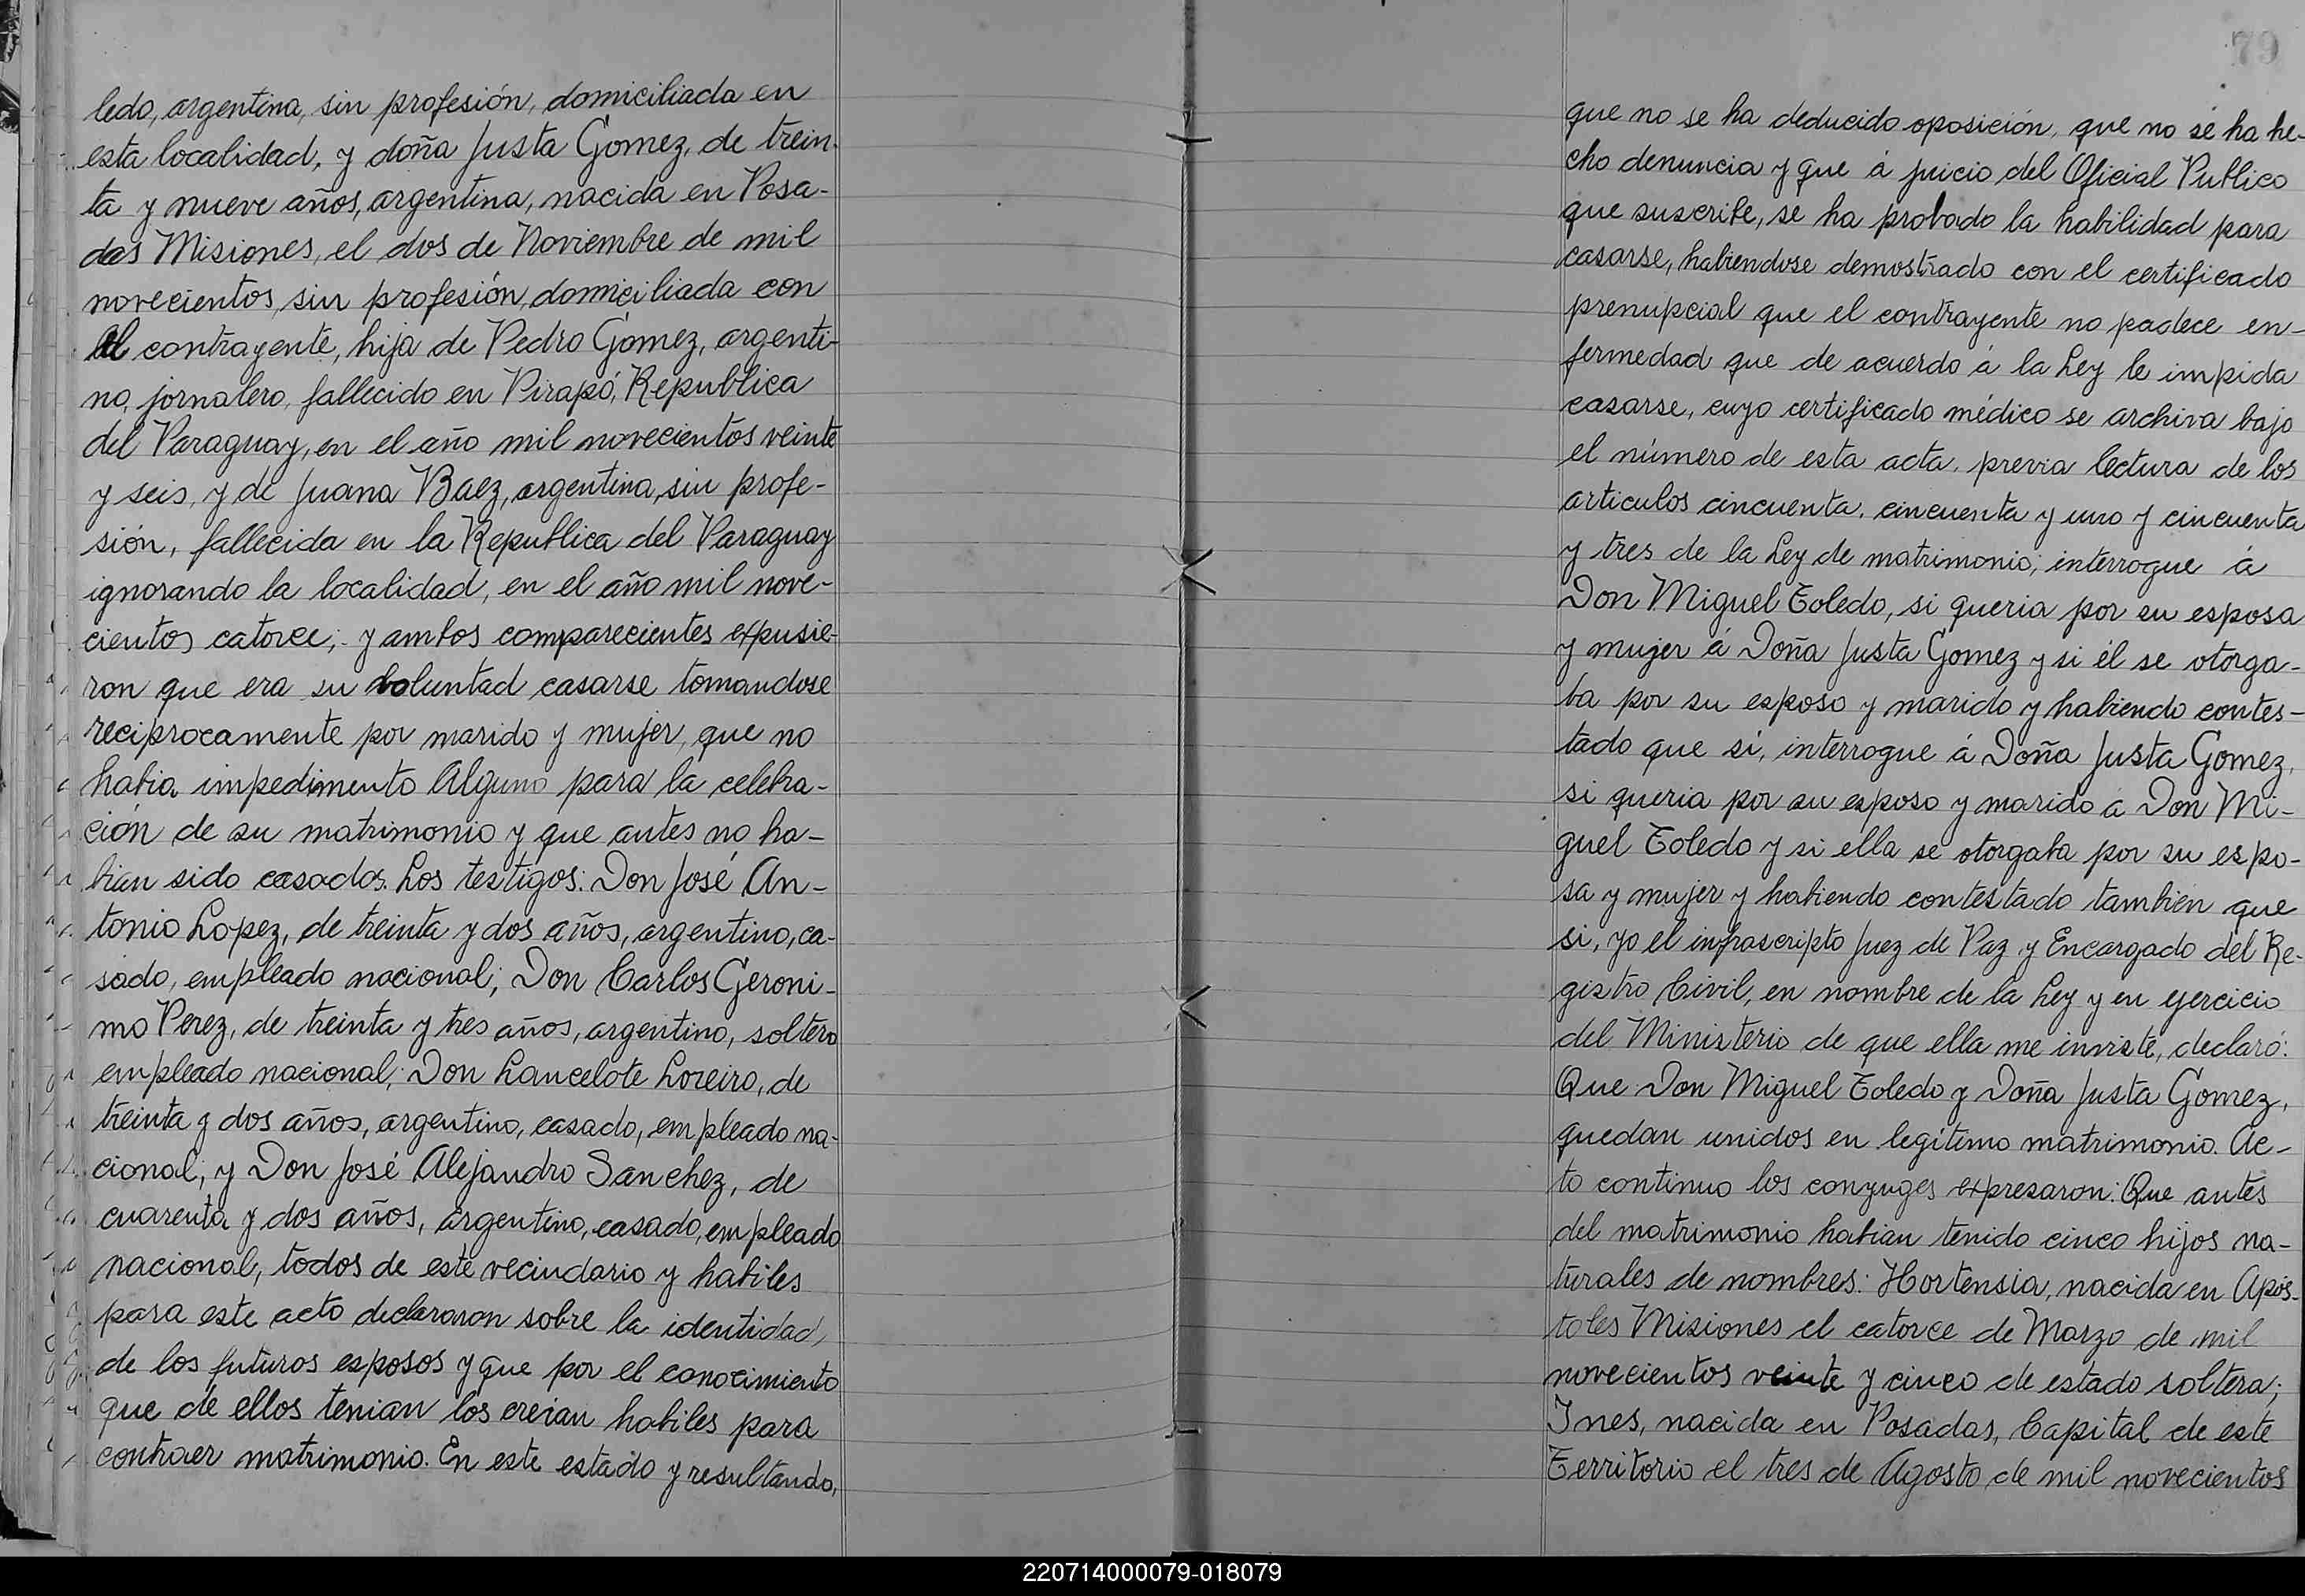 ledo, argentina, sin profesión, domiciliada en
esta localidad, y doña Justa Gomez, de trein-
ta y nueve años, argentina, nacida en Posa-
das Misiones, el dos de Noviembre de mil
novecientos, sin profesión, domiciliada con
el contrayente, hija de Pedro Gomez, argenti-
no, jornalero, fallecido en Pirapó, Republica
del Paraguay, en el año mil novecientos veinte
y seis, y de Juana Baez, argentina, sin profe-
sión, fallecida en la Republica del Paraguay
ignorando la localidad, en el año mil nove-
cientos catorce; y ambos comparecientes expusie-
ron que era su voluntad casarse tomandose
reciprocamente por marido y mujer, que no
habia impedimento alguno para la celebra-
ción de su matrimonio y que antes no ha-
bian sido casados. Los testigos: Don José An-
tonio Lopez, de treinta y dos años, argentino, ca-
sado, empleado nacional; Don Carlos Geroni-
mo Perez, de treinta y tres años, argentino, soltero
empleado nacional; Don Lancelote Loreiro, de
treinta y dos años, argentino, casado, empleado na-
cional; y Don José Alejandro Sanchez, de
cuarenta y dos años, argentino, casado, empleado
nacional, todos de este vecindario y habiles
para este acto declararon sobre la identidad
de los futuros esposos y que por el conocimiento
que de ellos tenian los creian habiles para
contraer matrimonio. En este estado y resultando,
79
que no se ha deducido oposición, que no se ha he-
cho denuncia y que á juicio del Oficial Publico
que suscribe, se ha probado la habilidad para
casarse, habiendose demostrado con el certificado
prenupcial que el contrayente no padece en-
fermedad que de acuerdo á la Ley le impida
casarse, cuyo certificado médico se archiva bajo
el número de esta acta, previa lectura de los
articulos cincuenta, cincuenta y uno y cincuenta
y tres de la Ley de matrimonio; interrogue á
Don Miguel Toledo, si queria por su esposa
y mujer á Doña Justa Gomez y si él se otorga-
ba por su esposo y marido y habiendo contes-
tado que si, interrogue á Doña Justa Gomez,
si queria por su esposo y marido á Don Mi-
guel Toledo y si ella se otorgaba por su espo-
sa y mujer y habiendo contestado tambien que
si, yo el infrascripto Juez de Paz y Encargado del Re-
gistro Civil, en nombre de la Ley y en ejercicio
del Ministerio de que ella me inviste, declaró:
Que Don Miguel Toledo y Doña Justa Gomez,
quedan unidos en legítimo matrimonio. Ac-
to continuo los conyuges expresaron: Que antes
del matrimonio habian tenido cinco hijos na-
turales de nombres: Hortensia, nacida en Apos-
toles Misiones el catorce de Marzo de mil
novecientos veinte y cinco de estado soltera;
Ines, nacida en Posadas, Capital de este
Territorio el tres de Agosto de mil novecientos
220714000079-018079